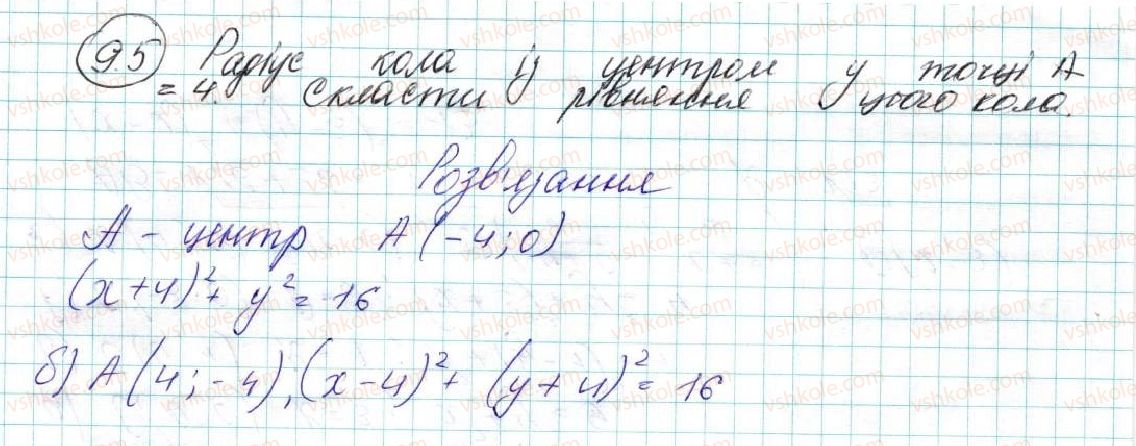 9.5 Радіус кола із центром у точці А
= 4. Скласти рівняння цього кола.
Розв'язання
А – центр А (-4; 0)
(x+4)² + y² = 16
б) А (4; -4), (x-4)² + (y+4)² = 16